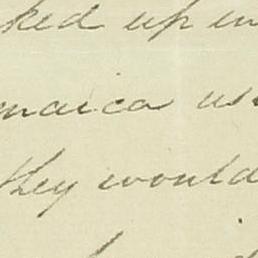 ked up in
maica us
they would